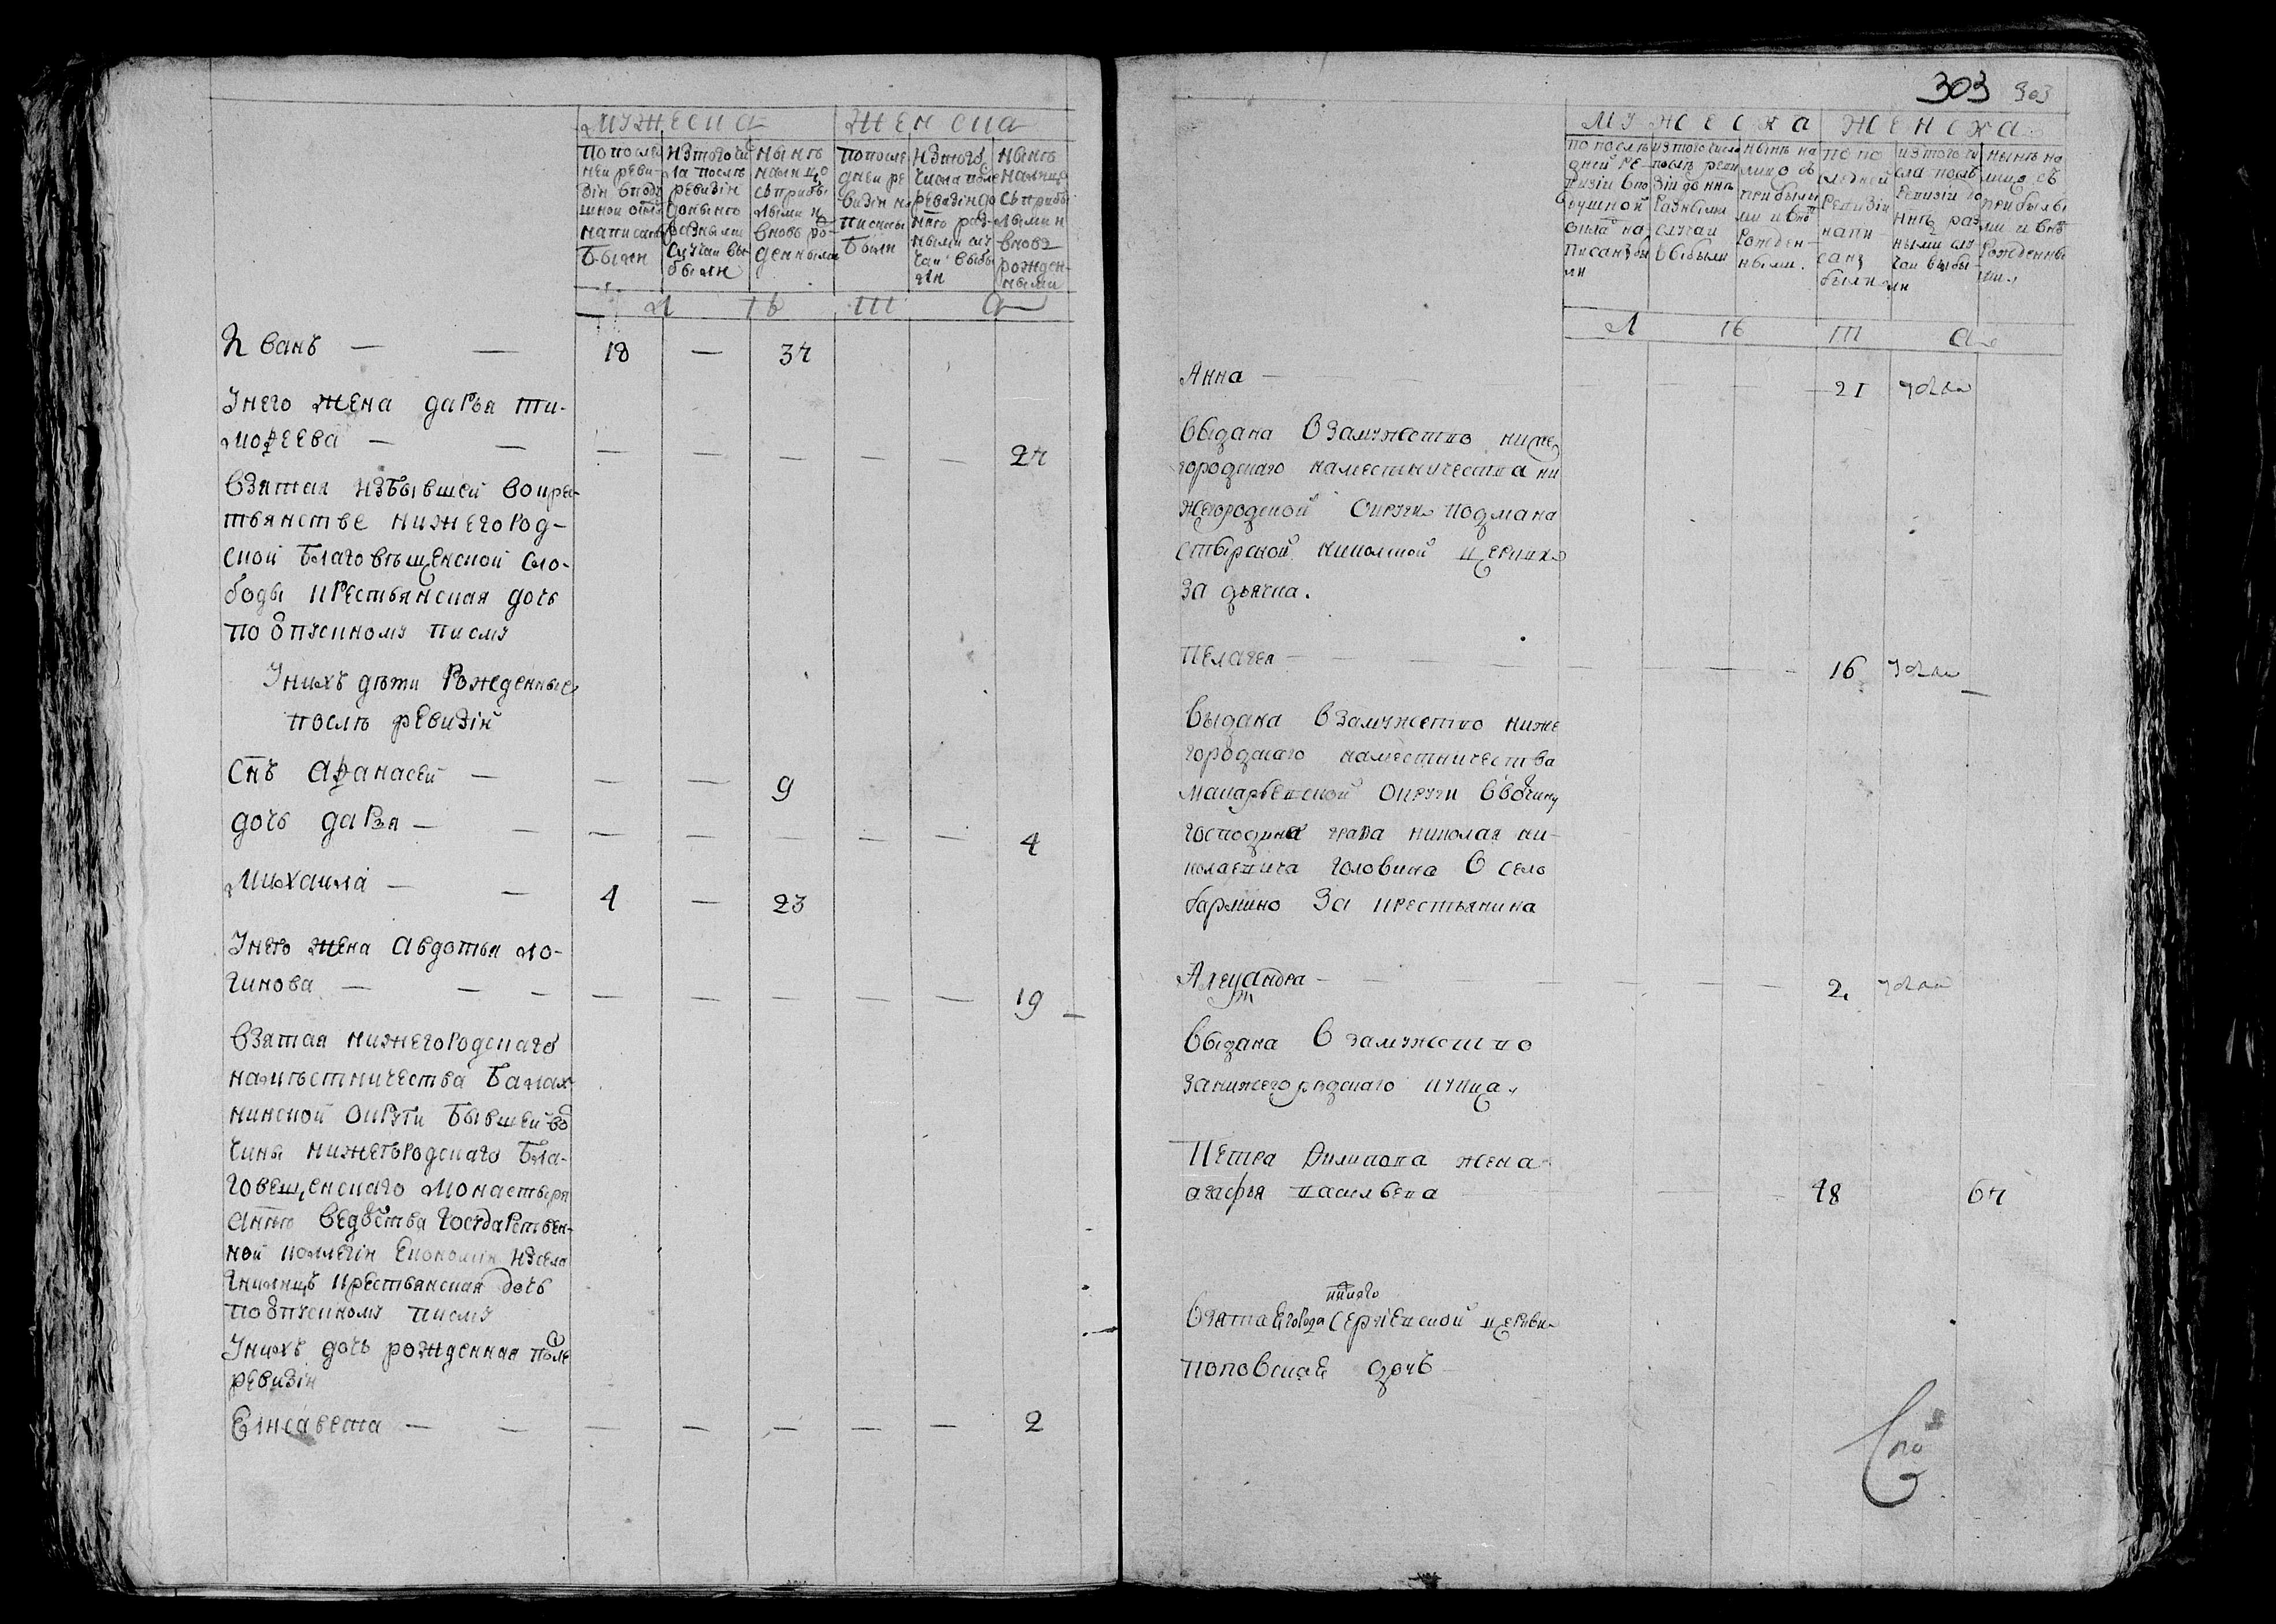 мужеска женска
По после
дней реви
зiи в под
ушной окла
написаны
Были
изтого чи
сла послѣ
ревизiи
донынѣ
разными
случаи вы
были
нынѣ
налицо
съ прибы
лыми и
вновь ро
жденными
попосле
дней ре
визiи на
писаны
Были
изтого
числа после
ревизiи до
нынѣ раз
ными слу
чаи выбы
ли
нынѣ
налицо
съ прибы
лыми и
вновь
рожден
ными
Л Ѣ Т А
Иванъ — — 18 — 34
Унего жена дарья ти-
мофеева — — — — — — — 24
Взятая изБывшей во кре-
стьянстве нижегород-
ской Благовѣщенской сло-
боды крестьянская дочь
по отпускному писму
Унихъ дѣти Рожденные
послѣ ревизiи
Снъ Афанасей — — — 9
дочь дарья — — — — — — — 4
Михаила — — 4 — 23
Унего жена Авдотья ло-
гинова — — — — — — — — 19
Взятая нижегородскаго
намѣстничества Балах-
нинской округи Бывшей во
чины нижегородскаго Бла-
говещенскаго монастыря
а ннѣ ведомства государствен-
ной коллегiи Економiи изсела
гнилицъ крестьянская дочь
по отпускному писму
Унихъ дочь рожденная после
ревизiи
Елисавета — — — — — — — 2
303 303
мужеска женска
по послѣ
дней ре-
визiи в по
душной
окла на
писаны бы
ли
изтого числа
послѣ реви
зiи до ннѣ
разными
случаи
выбыли
нынѣ на
лицо съ
прибылы
ми и вно
рожден-
ными.
по по
следней
ревизiи
напи-
саны
были
изтого чи
сла послѣ
ревизiи до
ннѣ раз
ными слу
чаи выбы-
ли
нынѣ на
лицо съ
прибылы
ми и внь
рожденны
ми
Л Ѣ Т А
Анна — — — — — — 21
выдана взамужство ниже
городскаго наместничества ни
жегородской округи подмана
стырской николской церкви
за дьячка.
Пелагея — — — — — — — 16
выдана взамужство ниже
городскаго наместничества
макарьевской округи ввочину
господина графа николая ни-
колаевича головина в село
бармино за крестьянина
Александра — — — — — — — 2
выдана в замужство
занижегородскаго купца
Петра Филипова жена
агафья васильева — 48 64
взята города Сергiевской церкви
поповская дочь